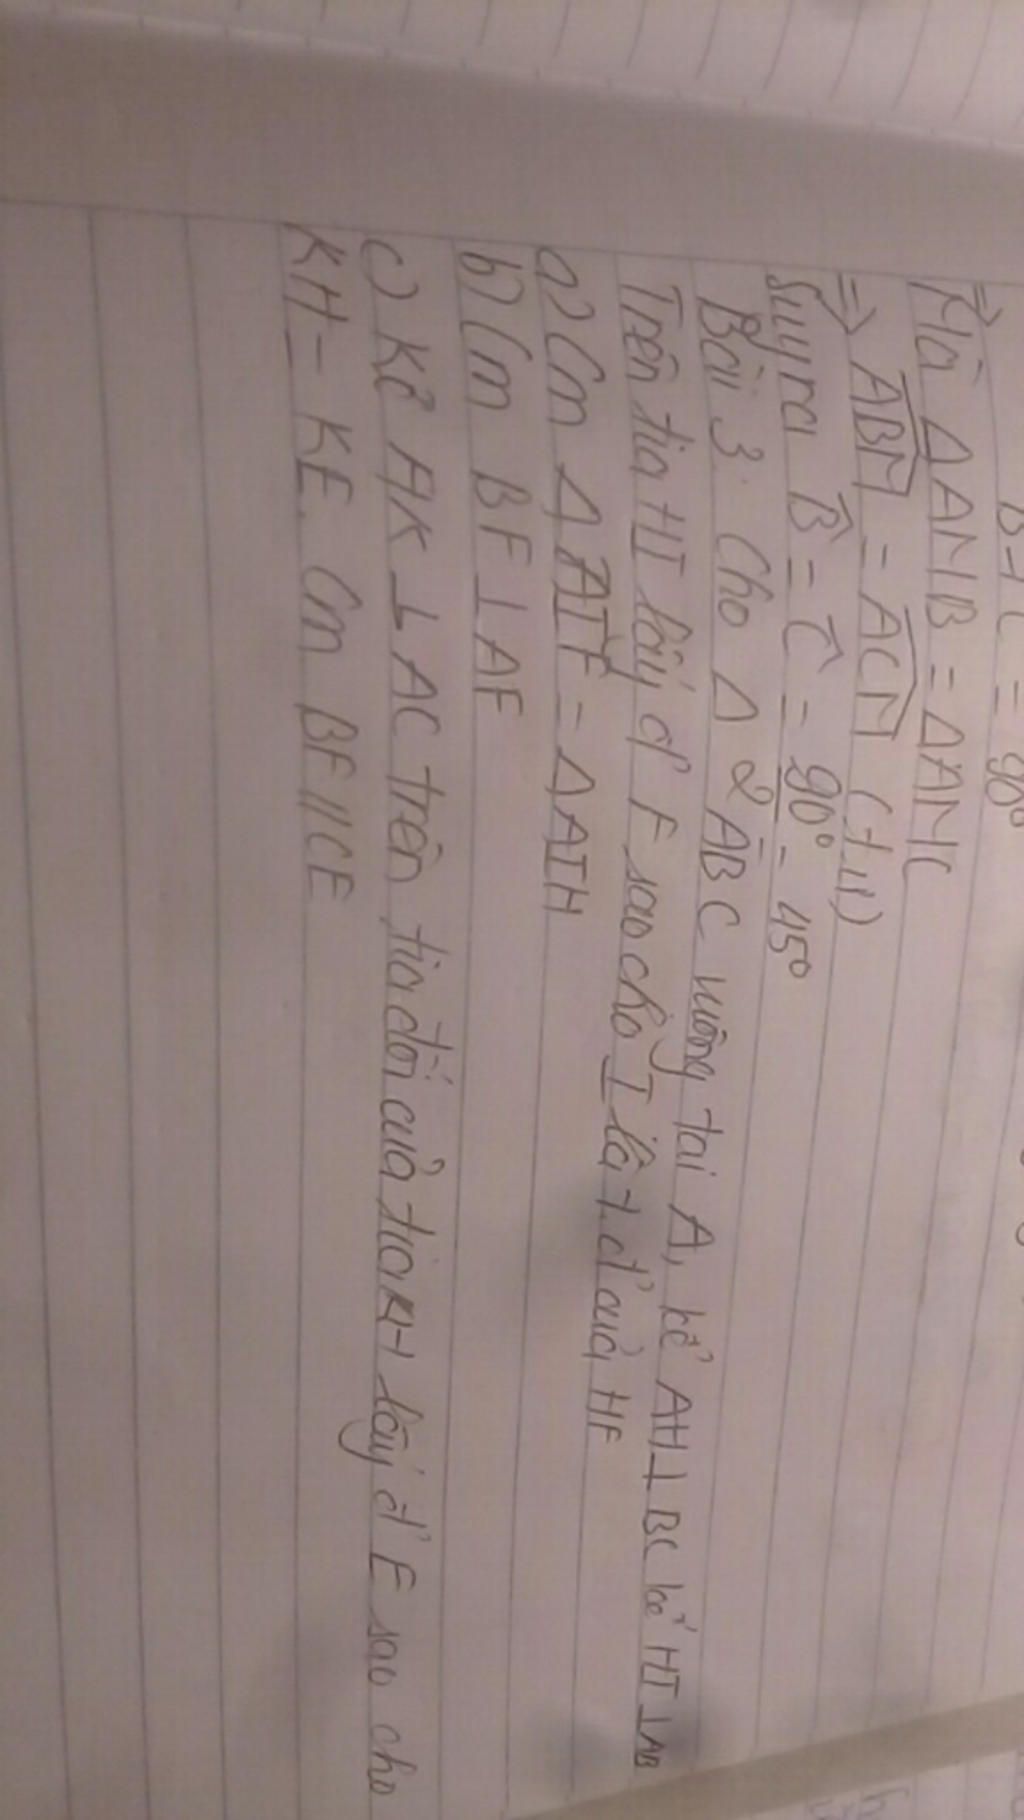 B+C = 90°
Mà ΔAMB = ΔAMC
=> ABM = ACM (t.ứ)
Suy ra B = C = 90° = 45°
2
Bài 3: Cho Δ ABC vuông tại A, kẻ AH⊥BC kẻ HI⊥AB
Trên tia HI lấy đ' F sao cho I là t.đ' của HF
a) Cm Δ AIF = Δ AIH
b) Cm BF ⊥ AF
c) Kẻ AK ⊥ AC trên tia đối của tia KH lấy đ' E sao cho
KH = KE. Cm BF // CE